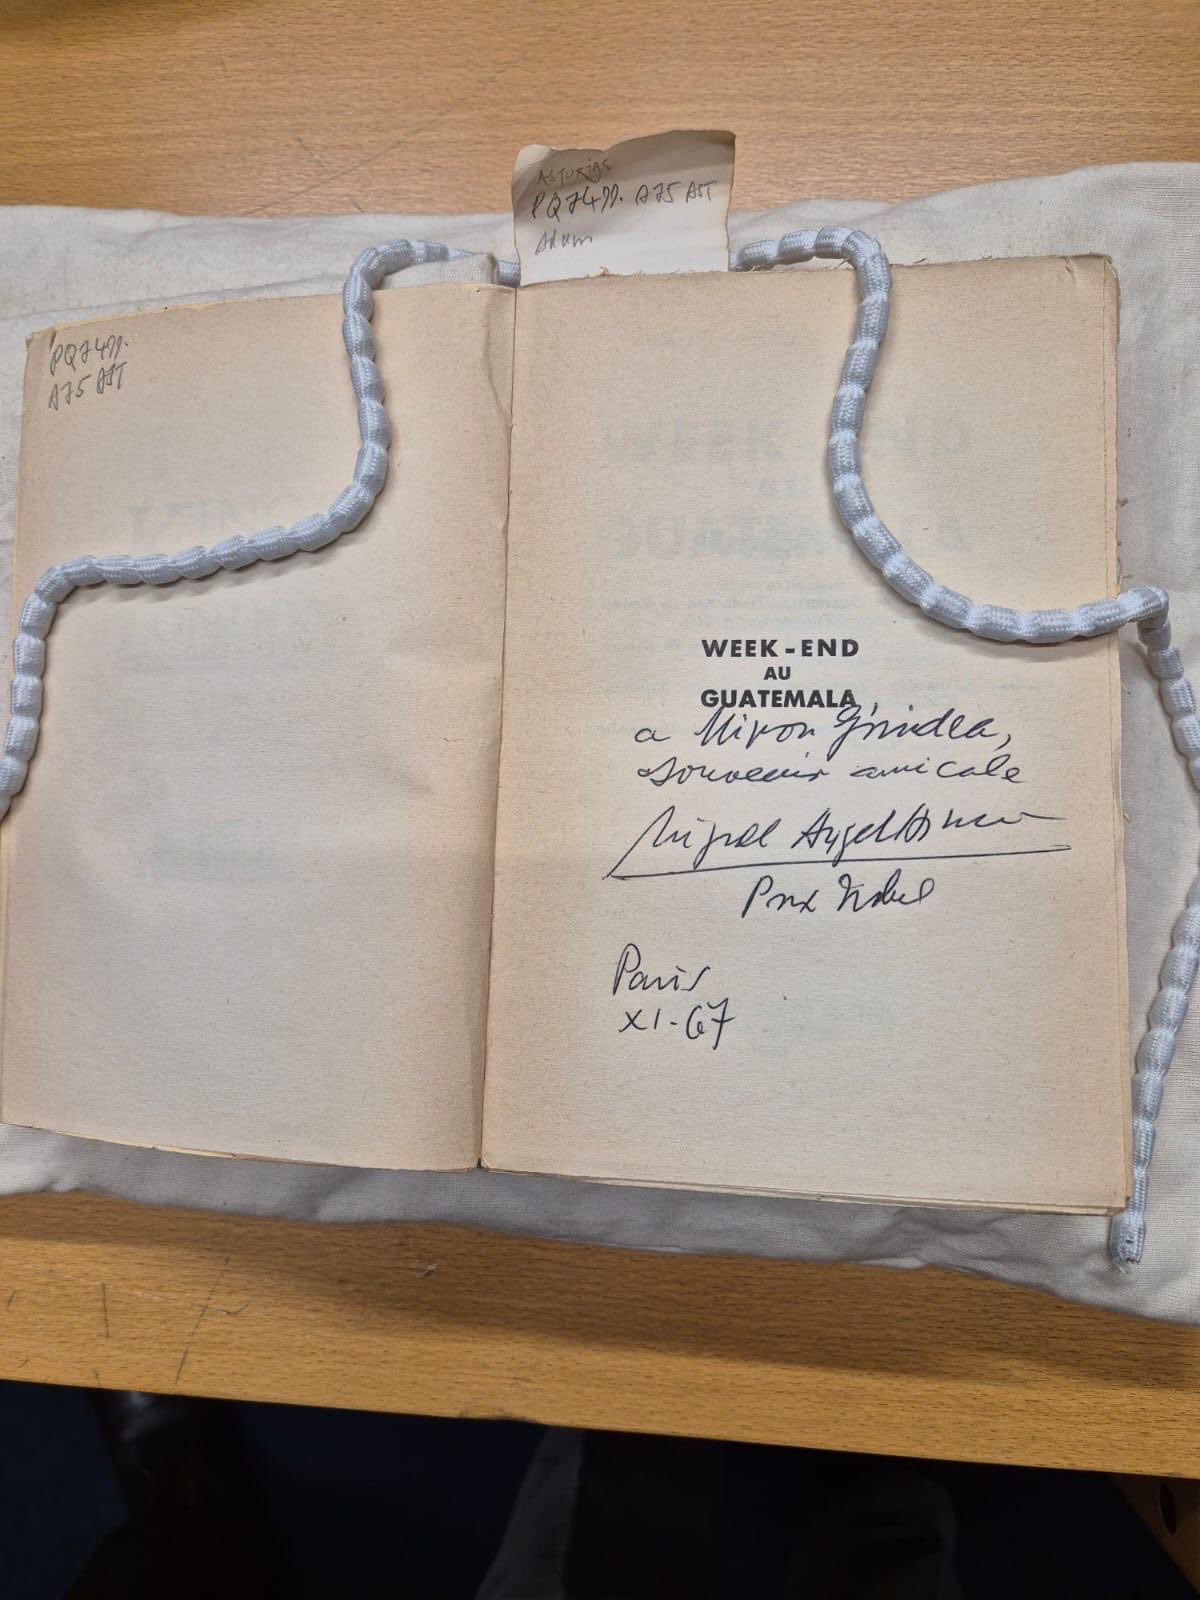 ASTURIAS
PQ7499. A75 AST
Adam
PQ7499.
A75 AST
WEEK-END
AU
GUATEMALA
a Miron Grindea,
souvenir amicale
Miguel Angel Asturias
Prix Nobel
Paris
XI-67